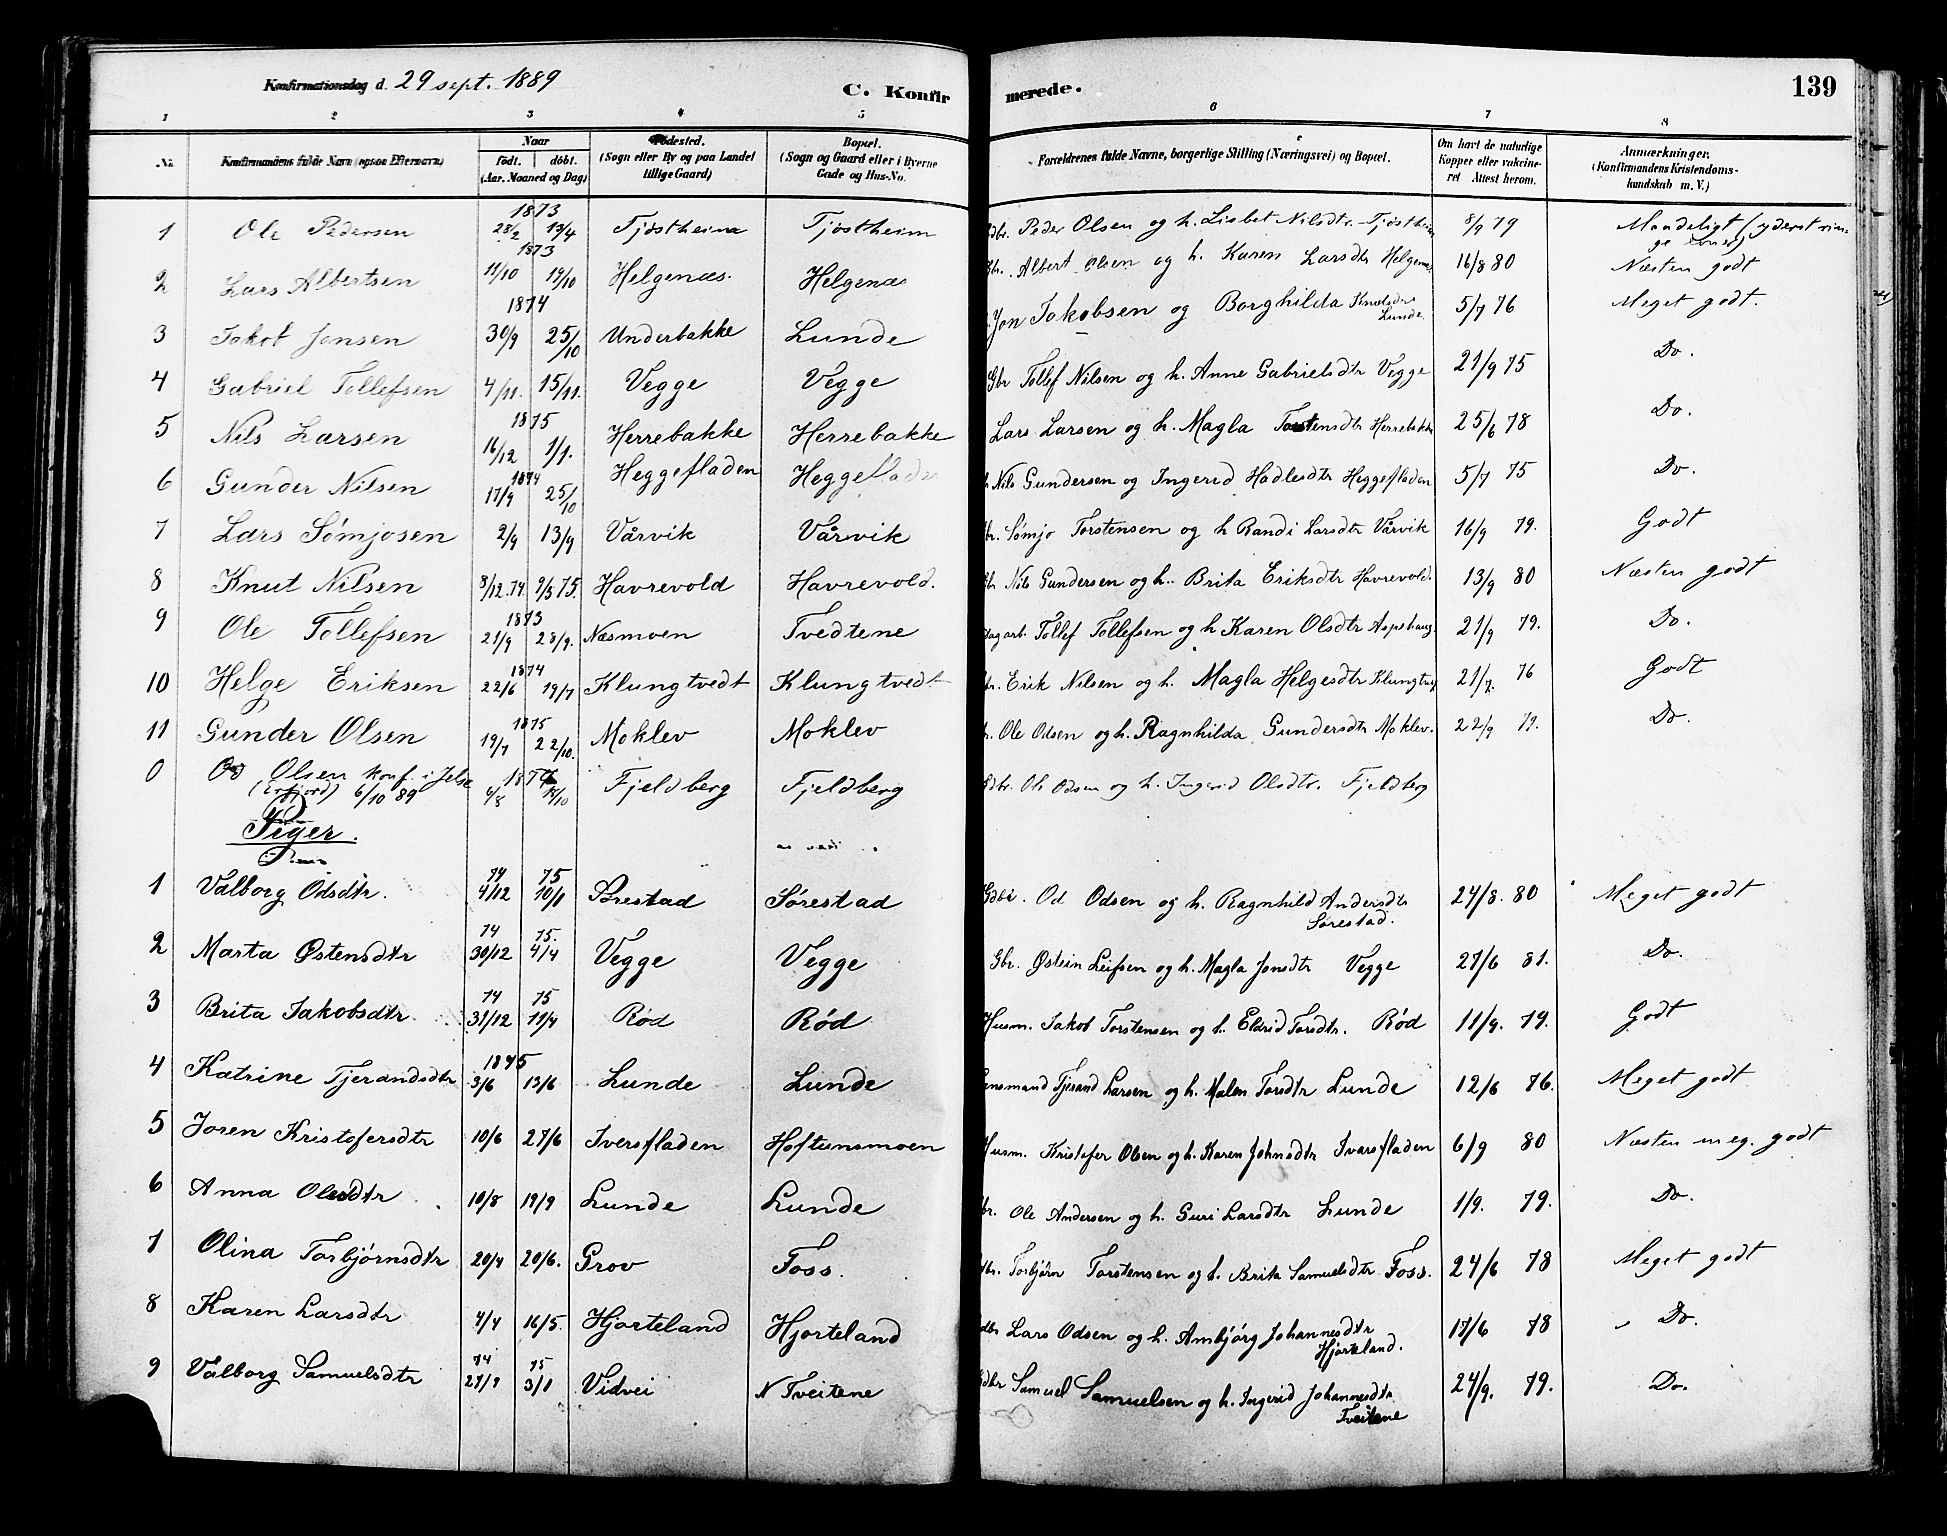 Konfirmationsdag d. 29 sept. 1889 C. Konfir merede. 139
1 2 3 4 5 6 7 8
No. Konfirmandens fulde Navn (ogsaa Efternavn) Naar født. døbt. (Aar, Maaned og Dag) Fødested. (Sogn eller By og paa Landet tillige Gaard) Bopæl. (Sogn og Gaard eller i Byerne Gade og Hus-No. Forældrenes fulde Navne, borgerlige Stilling (Næringsvei) og Bopæl. Om havt de naturlige Kopper eller vakcineret Attest herom. Anmærkninger. (Konfirmandens Kristendomskundskab m. V.)
1873
1 Ole Pedersen 28/2 13/4 Tjøstheim Tjøstheim Gbr. Peder Olsen og h. Lisbet Nilsdtr. Tjøstheim 8/9 79 Maadeligt (yderst ringe
1873
2 Lars Albertsen 11/10 19/10 Helgenæs. Helgenæs Gbr. Albert Olsen og h. Karen Larsdtr Helgenæs 16/8 80 Næsten godt
1874
3 Jakob Jonsen 30/9 25/10 Underbakke Lunde Jon Jakobsen og Borghilda Knutsdtr Lunde 5/7 76 Meget godt.
4 Gabriel Tollefsen 4/11. 15/11. Vegge Vegge Gbr Tollef Nilsen og h. Anne Gabrielsdtr Vegge 21/9 75 Do.
1875
5 Nils Larsen 16/12 1/1. Herrebakke Herrebakke Lars Larsen og h. Magla Torstensdtr Herrebakke 25/6 78 Do.
1874
6 Gunder Nilsen 17/9 25/10 Heggefladen Heggeflade Nils Gundersen og Ingerid Hadlesdtr Heggefladen 5/7 75 Do.
7 Lars Sømjosen 2/9 13/9 Vårvik Vårvik Gbr. Sømjo Torstensen og h Randi Larsdtr Vårvik 16/9 79. Godt
8 Knut Nilsen 8/12.74 9/5 75. Havrevold Havrevold. Gbr Nils Gundersen og h. Brita Eriksdtr Havrevold. 13/9 80 Næsten godt
1873
9 Ole Tollefsen 21/9 28/9. Næsmoen Tvedtene Dagarb. Tollef Tollefsen og h Karen Olsdtr Aspehaug. 21/9 79. Do.
1874
10 Helge Eriksen 22/6 19/7 Klungtvedt Klungtvedt Gbr. Erik Nilsen og h. Magla Helgesdtr Klungtv 21/7. 76 Godt
1875
11 Gunder Olsen 19/7 22/10. Moklev Moklev Ole Odsen og h. Ragnhilda Gundersdtr Moklev. 22/9 79. Do.
0 Od Olsen konf. i Jelse 4/8 Fjeldberg Fjeldberg Gdbr. Ole Odsen og h. Ingerid Olsdtr. Fjeldberg
(Erfjord) 6/10 89
Piger.
74 75
1 Valborg Odsdtr. 4/12 10/1 Sørestad Sørestad Gdbr. Od Odsen og h. Ragnhild Andersdtr Sørestad. 24/8. 80 Meget godt
74 75.
2 Marta Østensdtr 30/12 4/4 Vegge Vegge Gbr. Østein Leifsen og h. Magla Jonsdtr Vegge 27/6 81. Do.
74 75
3 Brita Jakobsdtr. 31/12 11/4 Rød Rød Husm. Jakob Torstensen og h. Eldrid Torsdtr. Rød 11/9. 79. Godt
1875
4 Katrine Tjerandsdtr 3/6 13/6 Lunde Lunde Lensmand Tjerand Larsen og h. Malen Torsdtr Lunde 12/6 76. Meget godt
5 Joren Kristofersdtr 10/6 27/6 Iversfladen Hoftunsmoen Husm. Kristofer Olsen og h. Karen Johnsdtr Ivarsfladen 6/9 80 Næsten meg. godt
6 Anna Olesdtr 10/8 19/9 Lunde Lunde Gbr. Ole Andersen og h. Guri Larsdtr Lunde 1/9. 79. Do.
7 Olina Torbjørnsdtr 20/4 20/6. Grov Foss. Gdbr. Torbjørn Torstensen og h. Brita Samuelsdtr Foss. 24/6 78 Meget godt
8 Karen Larsdtr 4/4 16/5. Hjorteland Hjorteland Gdbr Lars Odsen og h. Ambjørg Johannesdtr Hjorteland. 17/6 78 Do.
74 75
9 Valborg Samuelsdtr 29/9 3/1 Vidvei N Tveitene Gdbr Samuel Samuelsen og h. Ingerid Johannesdtr Tveitene 24/9. 79. Do.